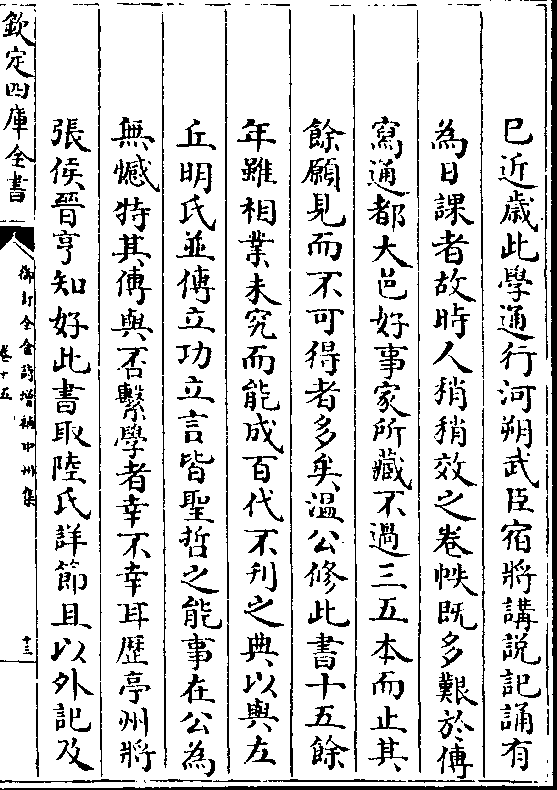 已近歲此學通行河朔武臣宿將講説記誦有
為日課者故時人稍稍效之卷帙既多艱於傳
寫通都大邑好事家所藏不過三五本而止其
餘願見而不可得者多矣温公修此書十五餘
年雖相業未究而能成百代不刋之典以與左
丘明氏並傳立功立言皆聖哲之能事在公為
無憾特其傳與否繫學者幸不幸耳歴亭州將
張侯晉亨知好此書取陸氏詳節且以外記及
欽定四庫全書
御訂全金詩增補中州集
卷十五
十三